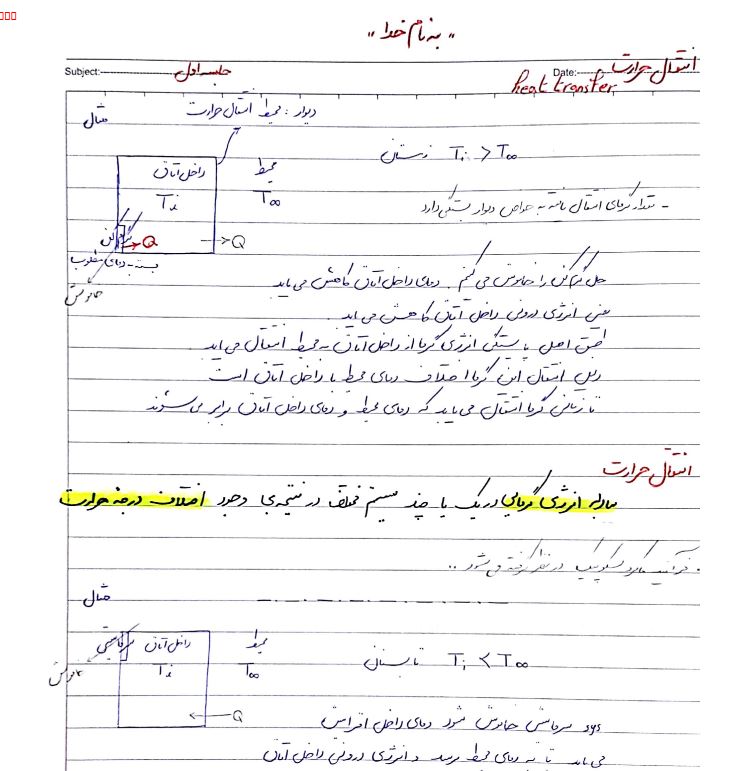 "به نام خدا"
انتقال حرارت
Subject: جلسه اول Date:
heat transfer
مثال
دیوار: محیط انتقال حرارت
زمستان Ti > T∞
داخل اتاق محیط
Ti T∞
- مقدار گرمای انتقال یافته به خواص دیوار بستگی دارد
گرم کن → Q → Q
دمای مطلوب
خاموش
حال گرم کن را خاموش می کنیم. دمای داخل اتاق کاهش می یابد
یعنی انرژی درونی داخل اتاق کاهش می یابد.
طبق اصل پایستگی انرژی گرما از داخل اتاق به محیط انتقال می یابد
دلیل انتقال این گرما اختلاف دمای محیط با داخل اتاق است
تا زمانی گرما انتقال می یابد که دمای محیط و دمای داخل اتاق برابر می شوند
انتقال حرارت
مبادله انرژی گرمایی در یک یا چند سیستم مختلف در نتیجه ی وجود اختلاف درجه حرارت
. فرآیند ماکروسکوپیک در نظر گرفته می شود ..
مثال
سرمایشی داخل اتاق محیط
خاموش Ti T∞
تابستان Ti < T∞
← Q
sys سرمایش خاموش شود دمای داخل افزایش
می یابد تا به دمای محیط برسد و انرژی درونی داخل اتاق